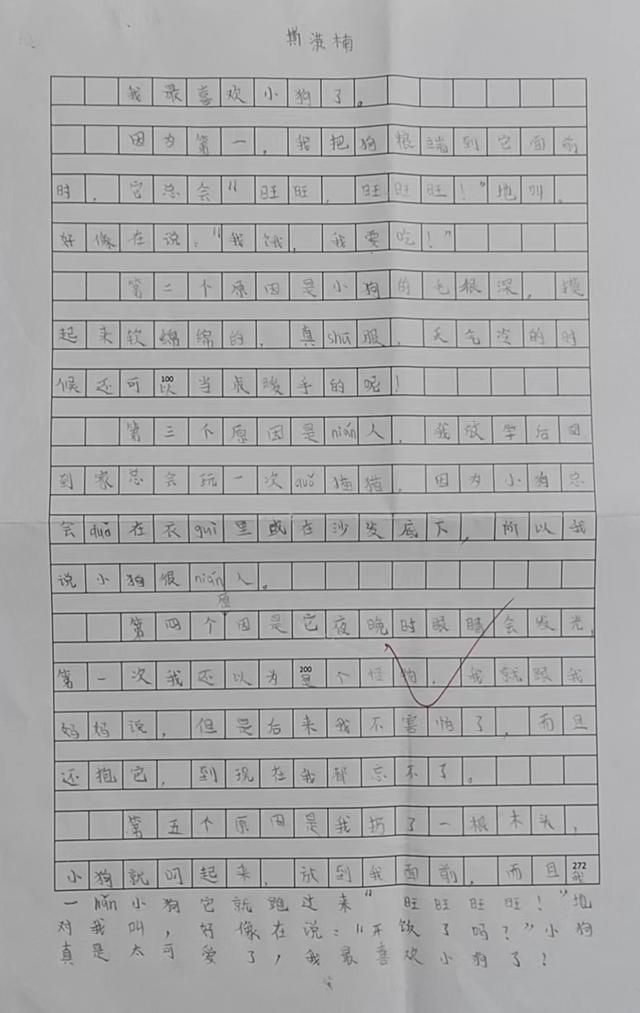 我最喜欢小狗了。
因为第一，我把狗粮端到它面前
时，它总会“旺旺，旺旺旺！”地叫。
好像在说：“我饿，我要吃！”
第二个原因是小狗的毛很深，摸
起来软绵绵的，真shū服，天气冷的时
候还可以当暖手的呢！
100
第三个原因是nián人，我放学后回
到家总会玩一次duǒ猫猫，因为小狗总
会duǒ在衣guì里或在沙发底下，所以我
说小狗很nián人。
第四个原因是它夜晚时眼睛会发光，
第一次我还以为是个怪物，我就跟我
200
妈妈说，但是后来我不害怕了，而且
还抱它，到现在我都忘不了。
第五个原因是我扔了一根木头，
小狗就叼起来，放到我面前，而且我
272
一hǎn小狗它就跑过来“旺旺旺旺！”地
对我叫，好像在说：“开饭了吗？”小狗
真是太可爱了，我最喜欢小狗了！